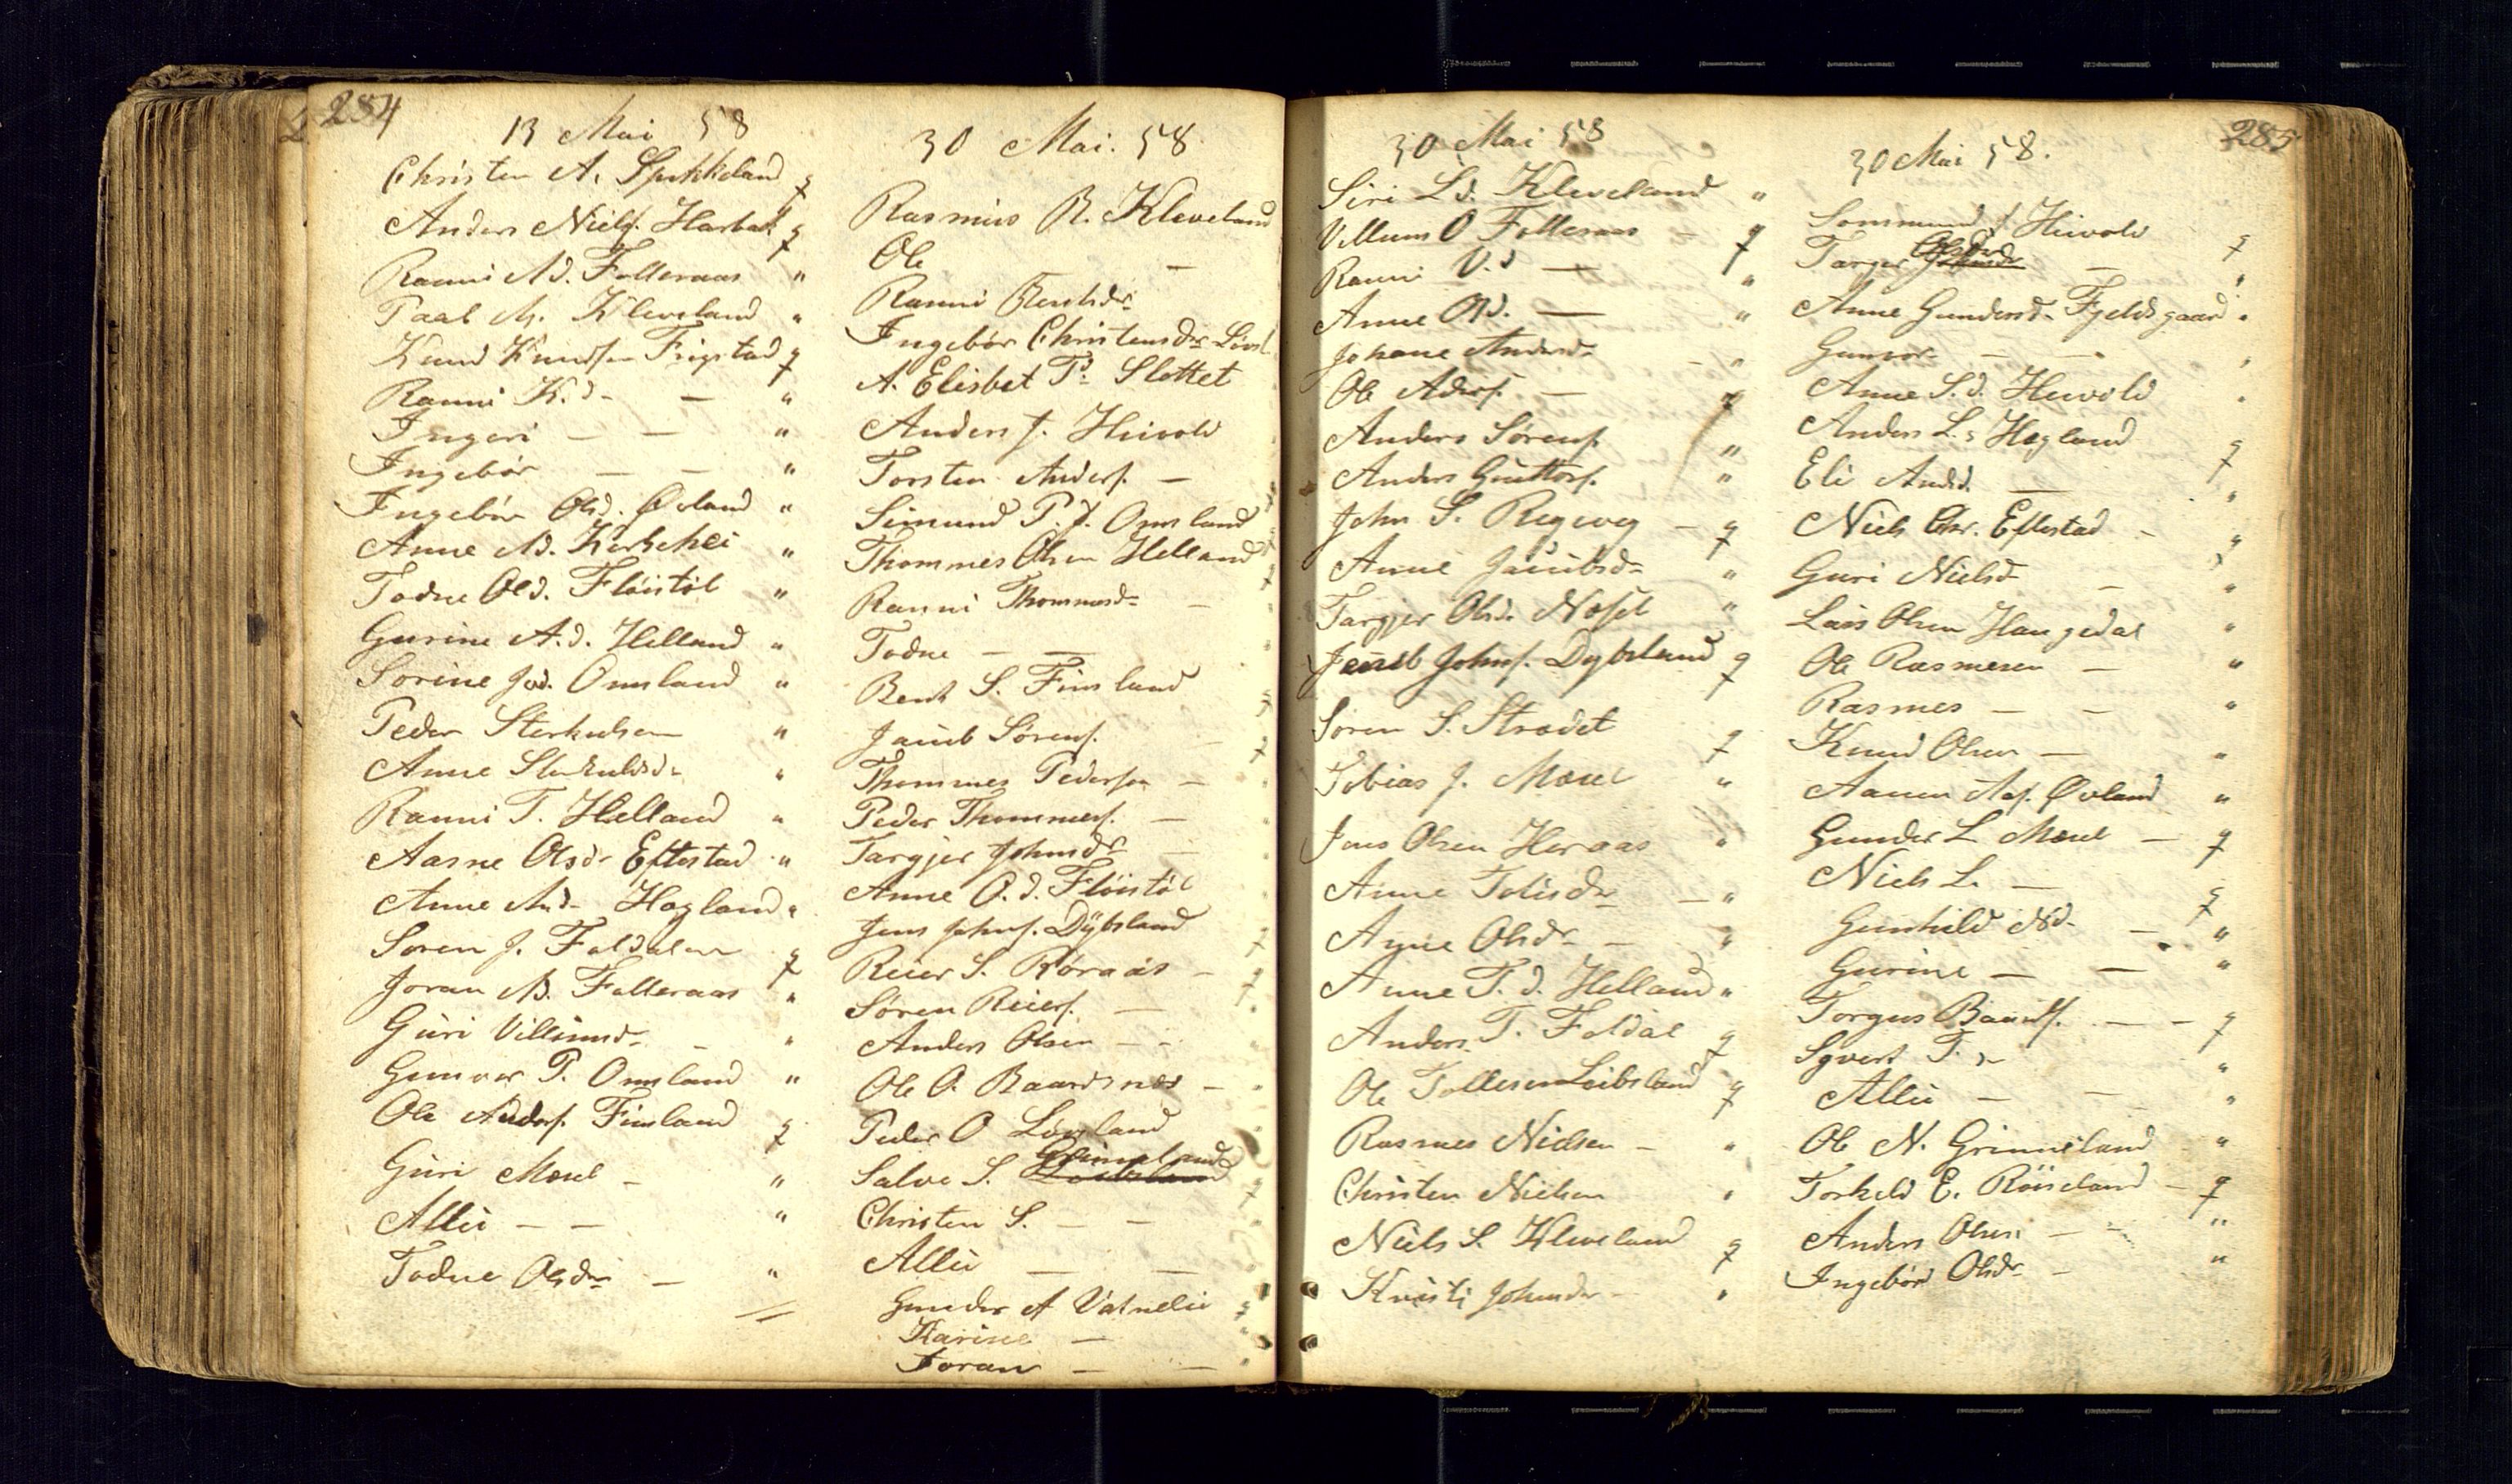 284
13 Mai 58
Christen A. Spikkeland g
Anders Nielss. Harbak g
Ranni Ad. Folleraas "
Paal M. Kleveland "
Knud Knudsen Frigstad g
Ranni K.d. — "
Ingeri — — "
Ingebör — — "
Ingebör Olsd. Øvland "
Anne Ad. "
Todne Old. Flöistöl "
Gurine A.d. Helland "
Sorine Jod. Omsland "
Peder Sterkulsen "
Anne Sterkulsd. "
Ranni T. Helland "
Aasne Olsdr Eftestad "
Anne And. Hagland "
Soren J. Foldalen g
Joran Ad. Folleraas "
Guri Villumsd. — "
Gunvor P. Omsland "
Ole Anders. Finsland g
Guri Moseid — "
Allis — — "
Todne Olsdr — "
30 Mai. 58
Rasmus B. Kleveland
Ole —
Ranni Bentsdr
Ingebör Christensdr
A. Elisbet P. Slottet
Anders J. Heivold
Torsten Anders. —
Simund P. J. Omsland
Thommes Olsen Helland
Ranni Thommesd. —
Todne — —
Bent S. Finsland
Jacob Sörens. —
Thommes Pedersen —
Peder Thommess. —
Targjer Johnsdr —
Anne O.d. Flöistöl
Jens Johns. Dybsland
Reier S. Röraas —
Sören Reiers. —
Anders Olsen — —
Ole O. Baardsnes —
Peder O Lövland
Salve S. Grimeland
Christen S. — —
Allis — —
Gunder A Vatnelie
Karine —
Joran — —
285
30 Mai 58
Siri Ld. Kleveland "
Villum O Folleraas — g
Ranni V.d — "
Anne Old. — "
Johane Andersd. — "
Ole Aders. — g
Anders Sörens. "
Anders Guttors. "
John S. Regeveg — g
Anne Jacobsd. "
Targjer Olsdr "
Jacob Johns. Dybsland g
Soren S. Strædet g
Tobias J. "
Jens Olsen Heraas "
Anne Tolisdr — "
Anne Olsdr — "
Anne T.d. Helland "
Anders T. Foldal g
Ole Tollesen Leibsland g
Rasmes Nielsen — "
Christen Nielsen "
Niels S. Kleveland g
Kristi Johnsdr — "
30 Mai 58.
Sommund J Heivold g
Targer Olsdr — "
Anne Gundersd. Fjeldsgaard "
Gunvor — — "
Anne S.d. Heivold "
Anders L. Hagland g
Eli Andsd. — "
Niels Chr. Eftestad — "
Guri Nielsd — "
Lars Olsen Haugedal "
Ole Rasmesen — "
Rasmes — — "
Knud Olsen — "
Aanen Aas. Øvland "
Gunder L — g
Niels L. — g
Gunhild Nd. — "
Gurine — — "
Torgus Baards. — — g
Syvert T. "
Allis — — "
Ole N. Grimeland "
Torkeld E. Röiseland — g
Anders Olsen — — "
Ingebör Olsdr — "